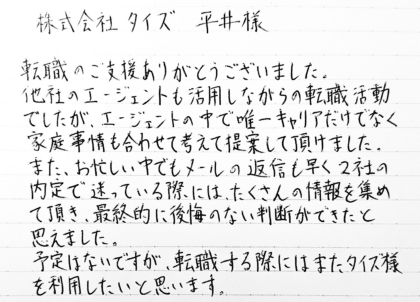 株式会社タイズ 平井様
転職のご支援ありがとうございました。
他社のエージェントも活用しながらの転職活動
でしたが、エージェントの中で唯一キャリアだけでなく
家庭事情も合わせて考えて提案して頂けました。
また、お忙しい中でもメールの返信も早く2社の
内定で迷っている際には、たくさんの情報を集め
て頂き、最終的に後悔のない判断ができたと
思えました。
予定はないですが、転職する際にはまたタイズ様
を利用したいと思います。